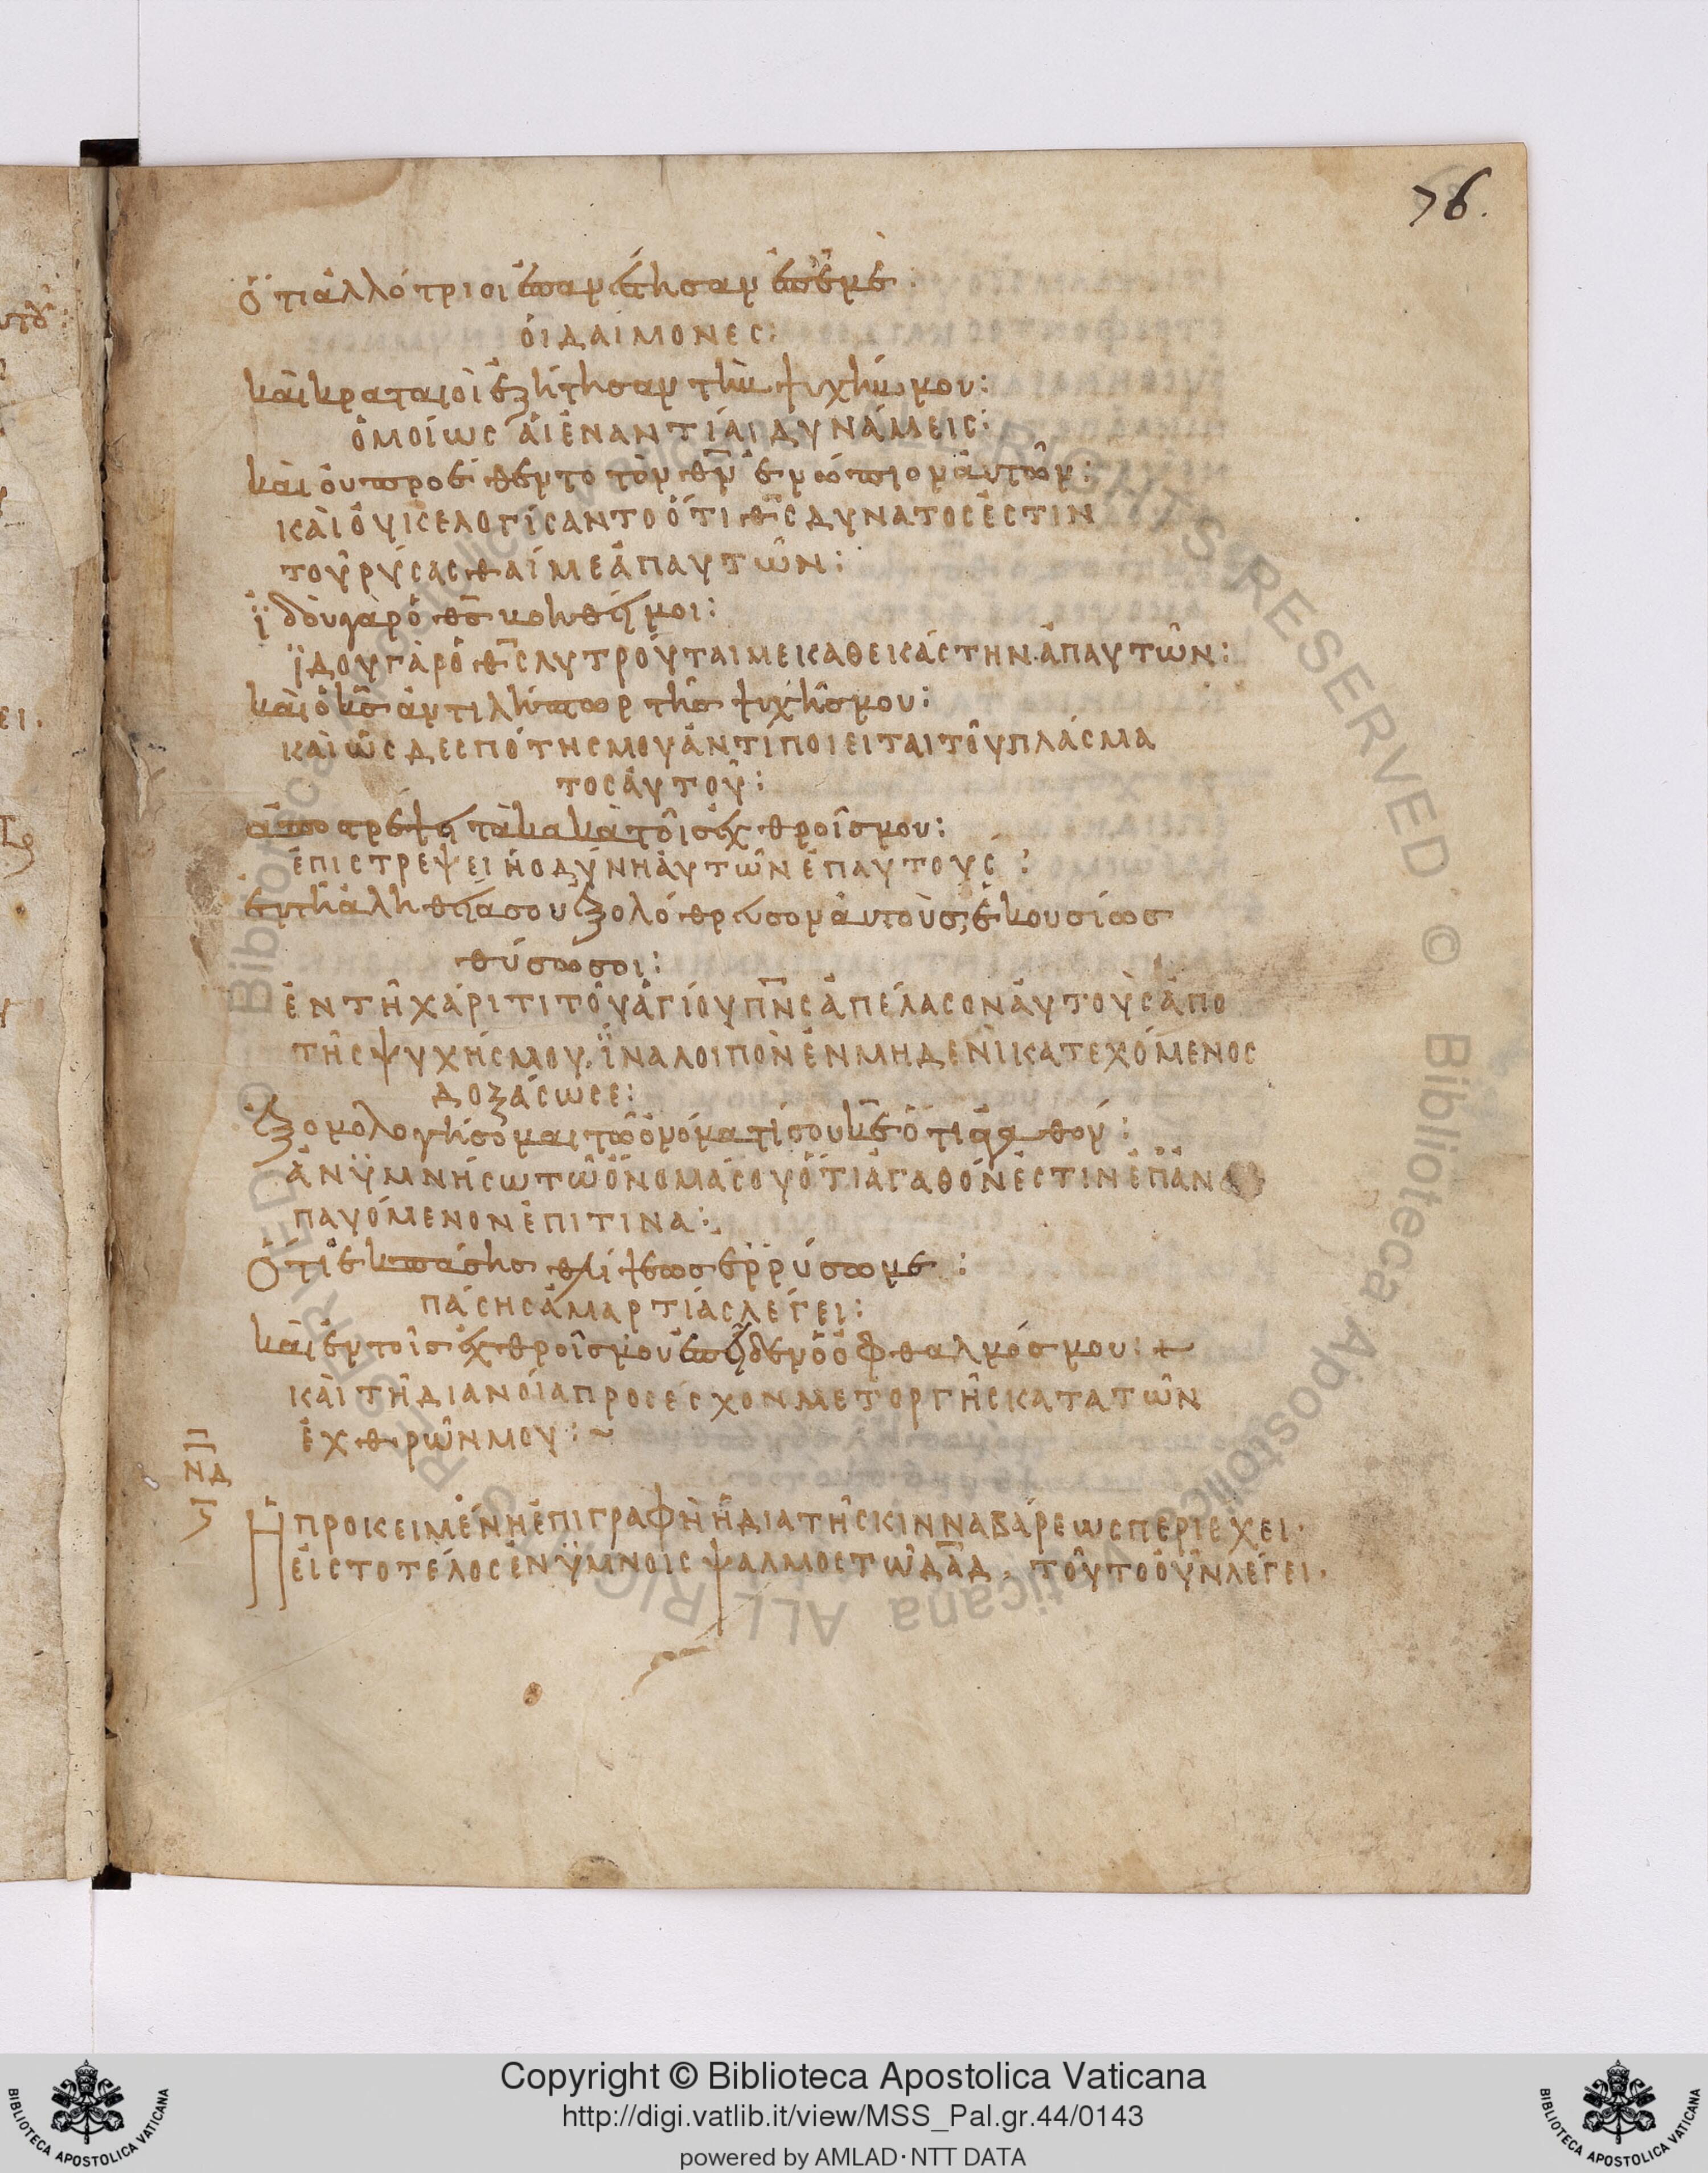 76.
ὅτι ἀλλότριοι ἐπανέστησαν ἐπ' ἐμέ:
ὁι δαίμονες:
καὶ κραταιοὶ ἐζήτησαν τὴν ψυχήν μου:
ὁμοίως ἁι ἐναντίαι δυνάμεις:
καὶ ὀυ προέθεντο τὸν θν ἐνώπιον ἀυτῶν:
καὶ ὀυκ ελογίσαντο ὅτι θς δυνατος ἐστιν
του ρύσασθαί με ἀπ αυτῶν:
ϊδὸυ γὰρ ὁ θς βοηθεῖ μοι:
ϊδου γὰρ ὁ θς λυτρούται με καθεικάστην ἀπ αυτῶν:
καὶ ὁ κς ἀντιλήπτωρ τῆς ψυχῆς μου:
καὶ ὡς δεσπότης μου ἀντιποιειται τοῦ πλάσμα
τος ἀυτοῦ:
ἀποστρέψει τὰ κακὰ τοῖς ἐχθροῖς μου:
ἐπιστρεψει ἡ οδύνη ἀυτῶν ἐπ αυτους:
ἐν τῆ ἀληθεία σου ἐξολόθρευσον ἀυτοὺς, ἑκουσίως
θύσω σοι:
ἐν τῆ χάριτι τοῦ ἁγίου πνς ἀπέλασον ἀυτοὺς ἀπο
τῆς ψυχής μου, ἵνα λοιπὸν ἐν μηδενὶ κατεχόμενος
δοξάσω σε:
ἐξομολογήσομαι τῶ ὀνόματί σου κε ὅτι ἀγαθον:
ἀνϋμνήσω τῶ ὄνομά σου ὅτι ἀγαθόν ἐστιν ἐπαν
παυόμενον ἐπι τινα:
ὅτι ἐκ πάσης θλίψεως ερρύσω με:
πάσης ἁμαρτίας λέγει:
καὶ ἐν τοῖς ἐχθροῖς μου ἐπεῖδεν ὁ ὀφθαλμός μου:
καὶ τῆ διανοία προσέσχον μετ οργῆς κατα τῶν
ἐχθρῶν μου:~
ΝΔ
Ἡ προκειμένη ἐπιγραφὴ ἡ δια τῆς κινναβάρεως περιέχει·
ἐις το τέλος ἐν ϋμνοις ψαλμος τῶ δαδ. τοῦτο ὀῦν λέγει·
Copyright © Biblioteca Apostolica Vaticana
http://digi.vatlib.it/view/MSS_Pal.gr.44/0143
powered by AMLAD·NTT DATA
BIBLIOTECA APOSTOLICA VATICANA
BIBLIOTECA APOSTOLICA VATICANA